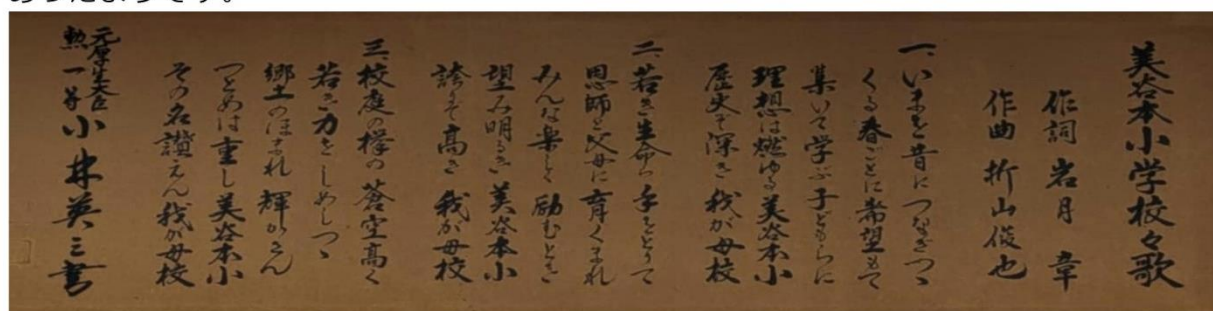 あったようです。
美谷本小学校々歌
作詞 岩月 章
作曲 折山俊也
一、いまを昔につなぎつゝ
くる春ごとに希望もて
集いて学ぶ子どもらに
理想は燃ゆる美谷本小
歴史ぞ深き我が母校
二、若き生命ら手をとりて
恩師と父母に育くまれ
みんな楽しく励むとき
望み明るき美谷本小
誇ぞ高き我が母校
三、校庭の欅の蒼空高く
若き力をしめしつゝ
郷土のほまれ輝かさん
つとめは重し美谷本小
その名讃えん我が母校
元厚生大臣
勲一等小林英三書